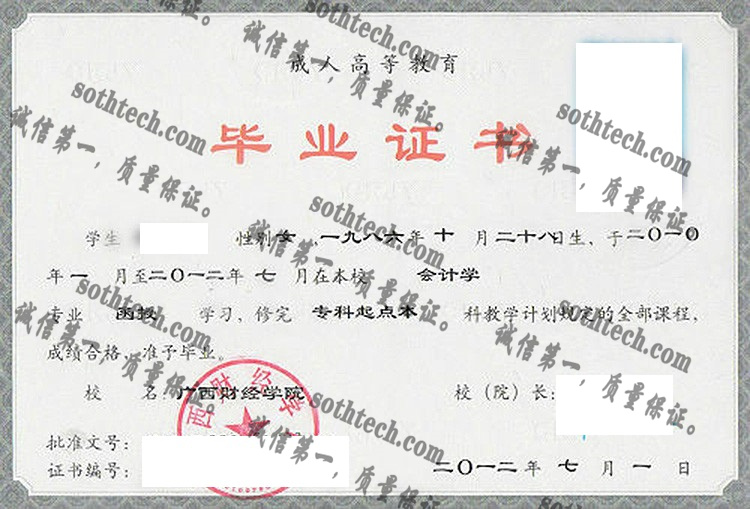 成人高等教育
毕业证书
学生 性别 女 ,一九八六年 十 月 二十八日生、于二〇一〇
年 一 月至二〇一二年 七 月在本校 会计学
专业 函授 学习、修完 专科起点本 科教学计划规定的全部课程,
成绩合格,准予毕业。
校 名:广西财经学院 校(院)长:
批准文号:
证书编号:
二〇一二年 七 月 一 日
西财经学
sothtech.com
诚信第一,质量保证。
sothtech.com
诚信第一,质量保证。
sothtech.com
诚信第一,质量保证。
sothtech.com
诚信第一,质量保证。
sothtech.com
诚信第一,质量保证。
sothtech.com
诚信第一,质量保证。
sothtech.com
诚信第一,质量保证。
sothtech.com
诚信第一,质量保证。